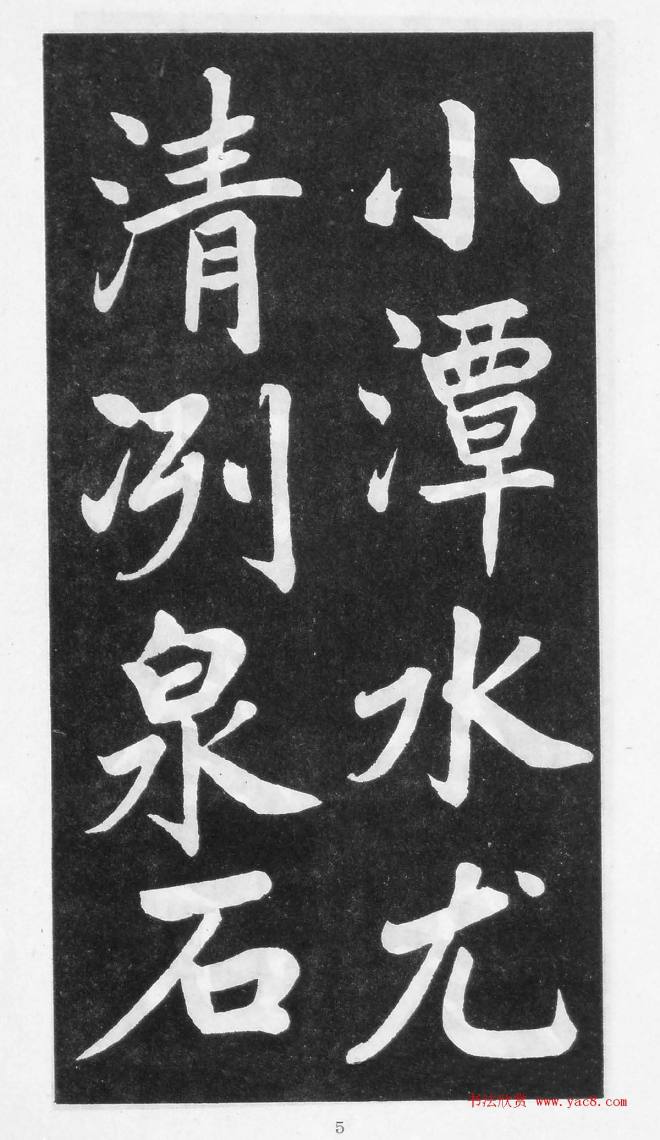 小潭水尤
清冽泉石
5
书法欣赏 www.yac8.com